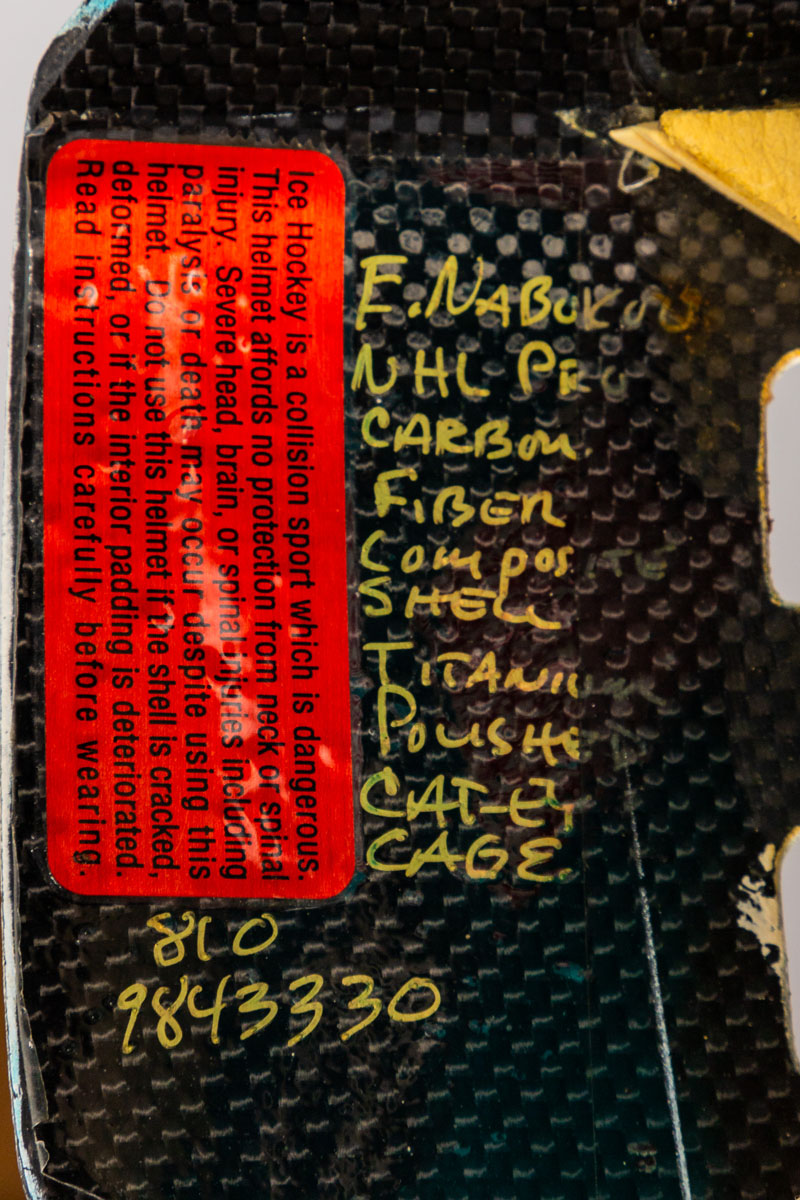 Ice Hockey is a collision sport which is dangerous.
This helmet affords no protection from neck or spinal
injury. Severe head, brain, or spinal injuries including
paralysis or death may occur despite using this
helmet. Do not use this helmet if the shell is cracked,
deformed, or if the interior padding is deteriorated.
Read instructions carefully before wearing.
E. NABOKOV
NHL PRO
CARBON
FIBER
COMPOSITE
SHELL
TITANIUM
POLISHED
CAT-EYE
CAGE
810
9843330